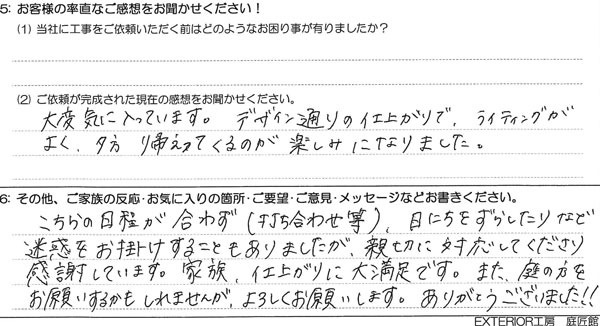 5: お客様の率直なご感想をお聞かせください！
(1) 当社に工事をご依頼いただく前はどのようなお困り事が有りましたか？
(2) ご依頼が完成された現在の感想をお聞かせください。
大変気に入っています。デザイン通りの仕上がりで、ライティングが
よく、夕方 帰えってくるのが楽しみになりました。
6: その他、ご家族の反応・お気に入りの箇所・ご要望・ご意見・メッセージなどお書きください。
こちらの日程が合わず(打ち合わせ等)、日にちをずらしたりなど
迷惑をお掛けすることもありましたが、親切に対応してくださり
感謝しています。家族、仕上がりに大満足です。また、庭の方を
お願いするかもしれませんが、よろしくお願いします。ありがとうございました!!
EXTERIOR工房 庭匠館